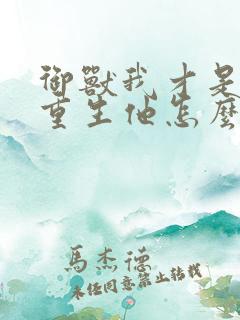 御獸我才是
重生他怎麼
馬杰德
未經同意禁止轉載